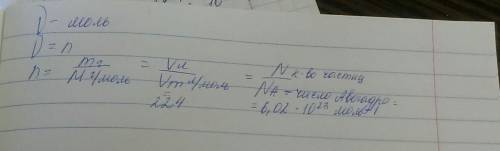 ν - моль
ν = n
n = m г / M г/моль = V л / Vm л/моль = N к-во частиц / NA - число Авогадро =
22,4 = 6,02 · 10²³ моль⁻¹